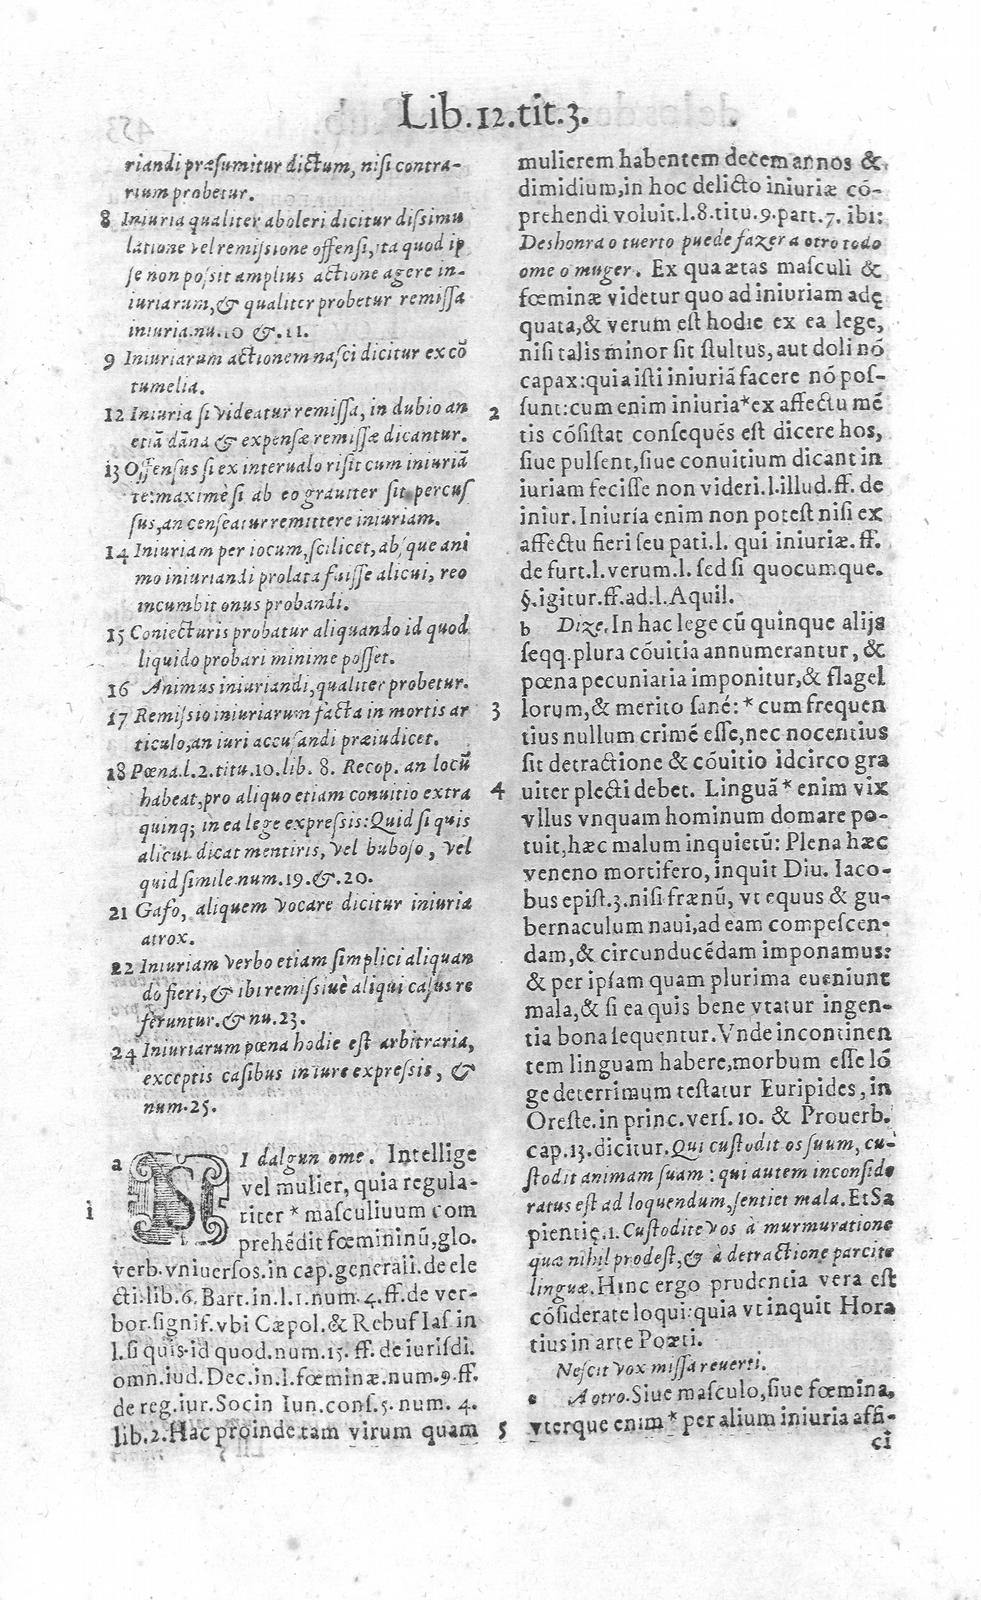 Lib.12.tit.3.
riandi præsumitur dictum, nisi contra-
rium probetur.
8 Iniuria qualiter aboleri dicitur dissimu
latione vel remissione offensi, ita quod ip
se non possit amplius actione agere in-
iuriarum, & qualiter probetur remissa
iniuria.nu.10 & .11.
9 Iniuriarum actionem nasci dicitur ex cō
tumelia.
12 Iniuria si videatur remissa, in dubio an
etiā dāna & expensæ remissæ dicantur.
13 Offensus si ex interualo risit cum iniuriā
te: maximè si ab eo grauiter sit percus
sus, an censeatur remittere iniuriam.
14 Iniuriam per iocum, scilicet, absque ani
mo iniuriandi prolata fuisse alicui, reo
incumbit onus probandi.
15 Coniecturis probatur aliquando id quod
liquido probari minime posset.
16 Animus iniuriandi, qualiter probetur.
17 Remissio iniuriarum facta in mortis ar
ticulo, an iuri accusandi præiudicet.
18 Pœna.l.2.titu.10.lib. 8. Recop. an locū
habeat, pro aliquo etiam conuitio extra
quinq; in ea lege expressis: Quid si quis
alicui dicat mentiris, vel bubojo, vel
quid simile.num.19.&.20.
21 Gafo, aliquem vocare dicitur iniuria
atrox.
22 Iniuriam verbo etiam simplici aliquan
do fieri, & ibi remissiuè aliqui casus re
feruntur.& nu.23.
24 Iniuriarum pœna hodie est arbitraria,
exceptis casibus in iure expressis, &
num.25.
a SI dalgun ome. Intellige
vel mulier, quia regula-
1 riter * masculiuum com
prehēdit fœmininū, glo.
verb.vniuersos.in cap.generali.de ele
cti.lib.6. Bart.in.l.1.num.4.ff.de ver-
bor.signif.vbi Cæpol.& Rebuf Ias in
l.si quis id quod.num.15. ff. de iurisdi.
omn.iud.Dec.in.l.fœminæ.num.9.ff.
de reg.iur.Socin Iun.cons.5.num. 4.
lib.2.Hac proinde tam virum quam
mulierem habentem decem annos &
dimidium, in hoc delicto iniuriæ cō-
prehendi voluit.l.8.titu.9.part.7. ibi:
Deshonra o tuerto puede fazer a otro todo
ome o muger. Ex qua ætas masculi &
fœminæ videtur quo ad iniuriam adę
quata, & verum est hodie ex ea lege,
nisi talis minor sit stultus, aut doli nō
capax: quia isti iniuriā facere nō pos-
2 sunt: cum enim iniuria * ex affectu mē
tis cōsistat consequēs est dicere hos,
siue pulsent, siue conuitium dicant in
iuriam fecisse non videri.l.illud.ff. de
iniur. Iniuria enim non potest nisi ex
affectu fieri seu pati.l. qui iniuriæ.ff.
de furt.l.verum.l. sed si quocumque.
§.igitur.ff.ad.l.Aquil.
b Dize. In hac lege cū quinque alijs
seqq.plura cōuitia annumerantur, &
pœna pecuniatia imponitur, & flagel
3 lorum, & merito sané: * cum frequen
tius nullum crimē esse, nec nocentius
sit detractione & cōuitio idcirco gra
4 uiter plecti debet. Linguā * enim vix
vllus vnquam hominum domare po-
tuit, hæc malum inquietū: Plena hæc
veneno mortifero, inquit Diu. Iaco-
bus epist.3.nisi frænū, vt equus & gu-
bernaculum naui, ad eam compescen-
dam, & circunducēdam imponamus:
& per ipsam quam plurima eueniunt
mala, & si ea quis bene vtatur ingen-
tia bona sequentur. Vnde incontinen
tem linguam habere, morbum esse lō
ge deterrimum testatur Euripides, in
Oreste.in princ.vers. 10. & Prouerb.
cap.13.dicitur. Qui custodit os suum, cu-
stodit animam suam : qui autem inconside
ratus est ad loquendum, sentiet mala. Et Sa
pientię.1. Custodite vos à murmuratione
quæ nihil prodest, & à detractione parcite
linguæ. Hinc ergo prudentia vera est
cōsiderate loqui: quia vt inquit Hora
tius in arte Poæti.
Nescit vox missa reuerti.
c A otro. Siue masculo, siue fœmina,
5 vterque enim * per alium iniuria affi-
ci